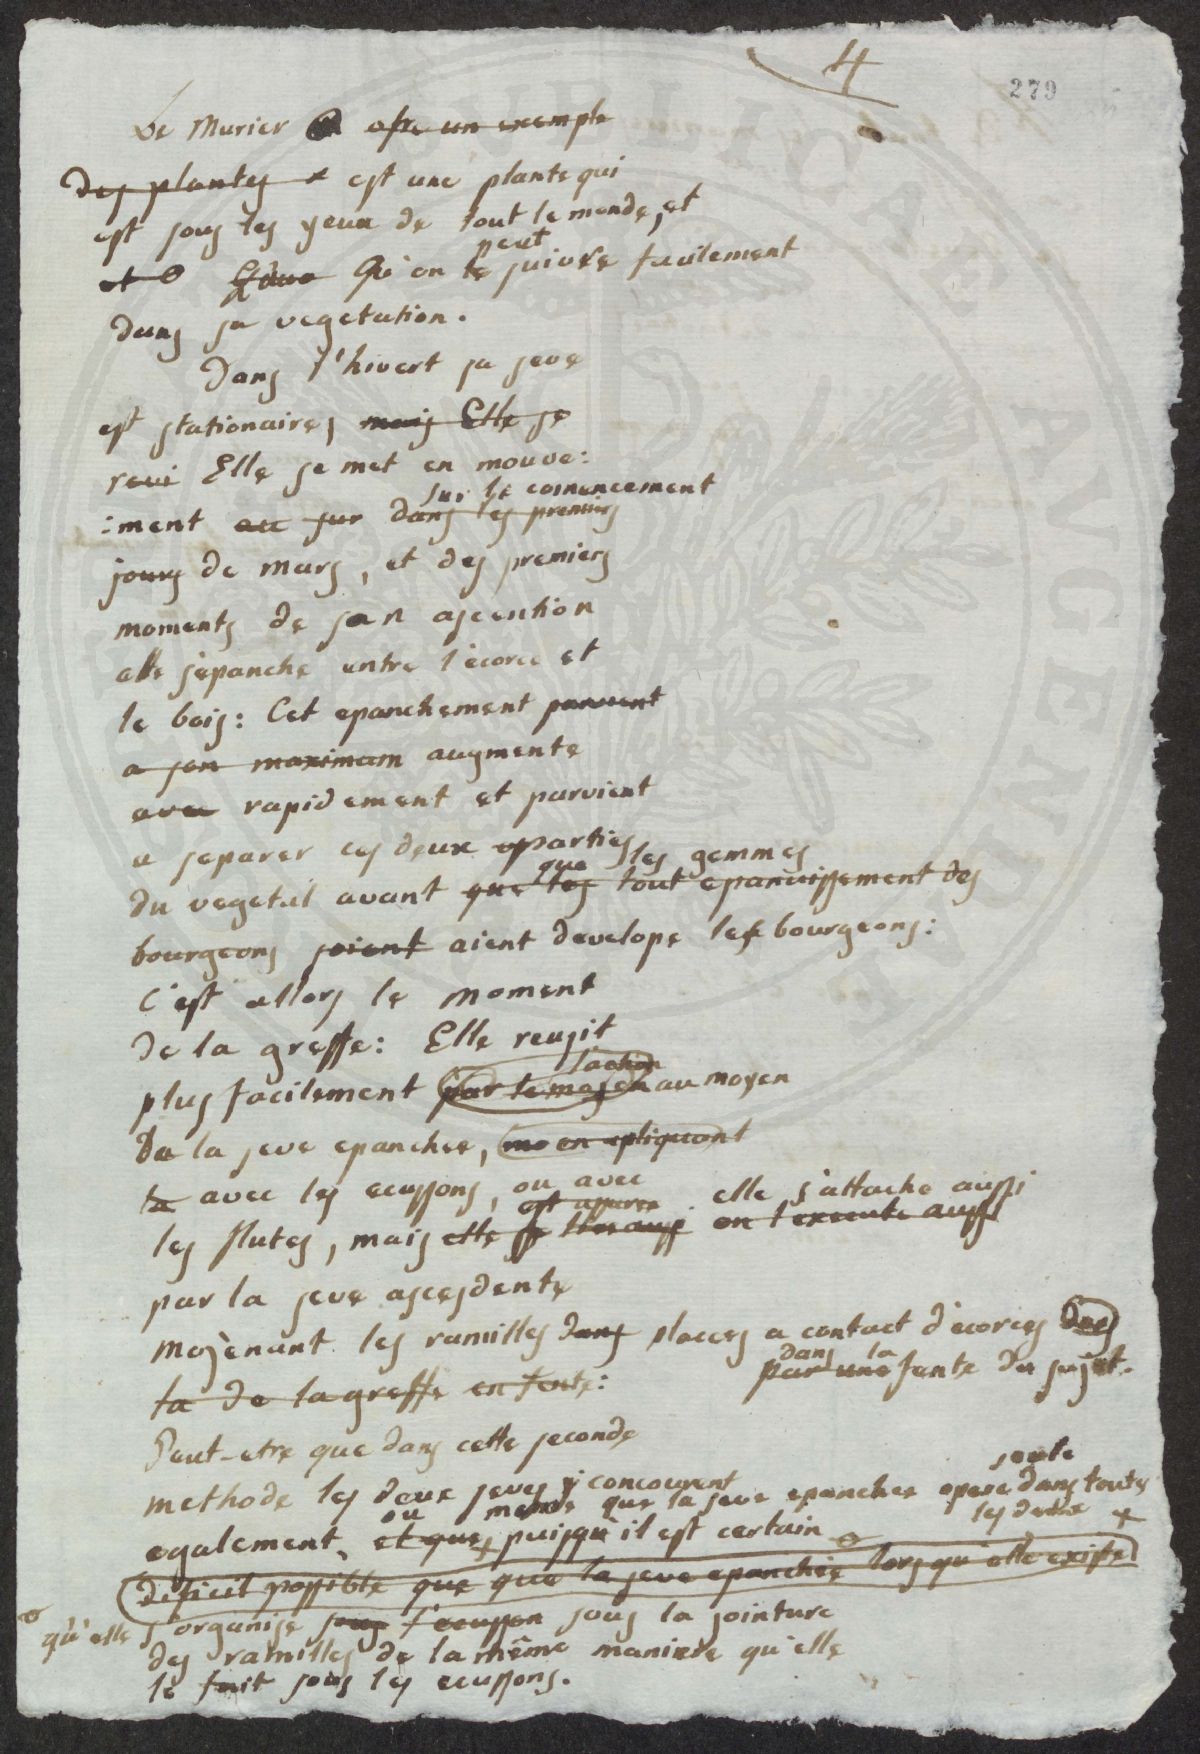 4
279
Le Murier ofre un exemple
des plantes est une plante qui
est sous les yeux de tout le monde, et
et Qu'on le peut suivre facilement
dans sa vegetation.
Dans l'hivert sa seve
est stationaire, mais Elle se
revi Elle se met en mouve:
sur le comencement
:ment au sur dans les premiers
jours de mars, et des premiers
moments de son ascention
elle s'epanche entre l'ecorce et
le bois: Cet epanchement parvient
a son maximum augmente
avec rapidement et parvient
a separer ces deux parties
que les gemmes
du vegetal avant que les tout epanouissement des
bourgeons soient aient develope les bourgeons:
C'est allors le moment
de la greffe: Elle reusit
l'action
plus facilement par le moyen au moyen
De la seve epanchee, en apliquant
avec les ecussons, ou avec
est assurée elle s'attache aussi
les flutes, mais elle se on l'execute aussi
par la seve ascesdente
Moyènant les ramilles dans placees a contact d'ecorces des
dans la
la de la greffe en fente: par une fente du sujet.
Peut-etre que dans cette seconde
seule
methode les deux seves y concourent
ou meme que la seve epanchee opere dans toutes
les deux +
egalement, et que puisqu'il est certain
dificil possible que que la seve epanchée lorsqu'elle existe
qu'elle s'organise sous l'ecusson sous la jointure
des ramilles de la même maniere qu'elle
le fait sous les ecussons.